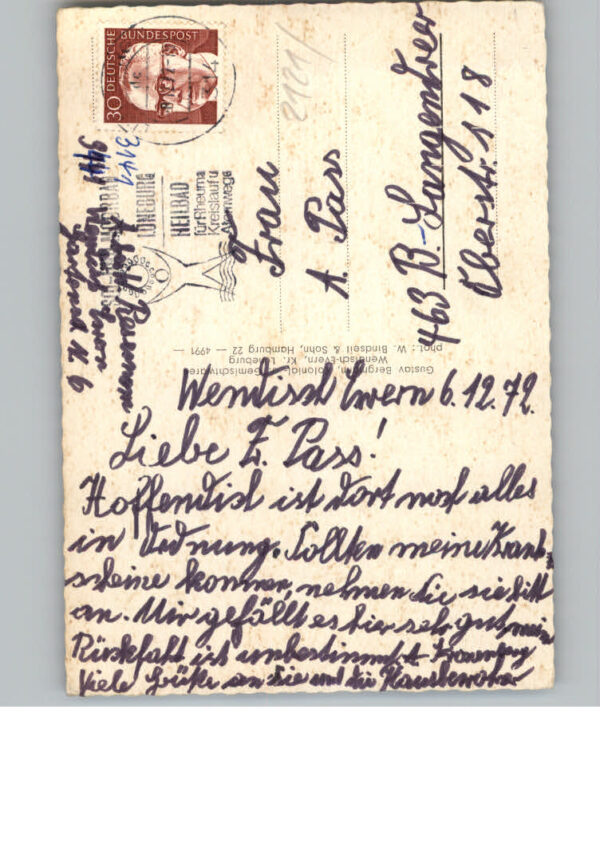 DEUTSCHE BUNDESPOST
30
2121/
3141
LÜNEBURG
HEILBAD
für Rheuma
Kreislauf u
Atemwege
Frau
A. Pass
463 B.-Langendreer
Oberstr. 118
Gustav Bergmann, Kolonial- u. Gemischtwaren
Wendisch-Evern, Kr. Lüneburg
phot.: W. Bindseil & Sohn, Hamburg 22 — 4991 —
Wendisch Ewern 6.12.72.
Liebe F. Pass!
Hoffendlich ist dort noch alles
in Ordnung. Sollten meine Krank-
scheine kommen, nehmen Sie sie bitt
an. Mir gefällt es hier sehr gut, meine
Rückfaht ist unbestimmt A.
Viele Grüße an Sie und die Hausbewohner